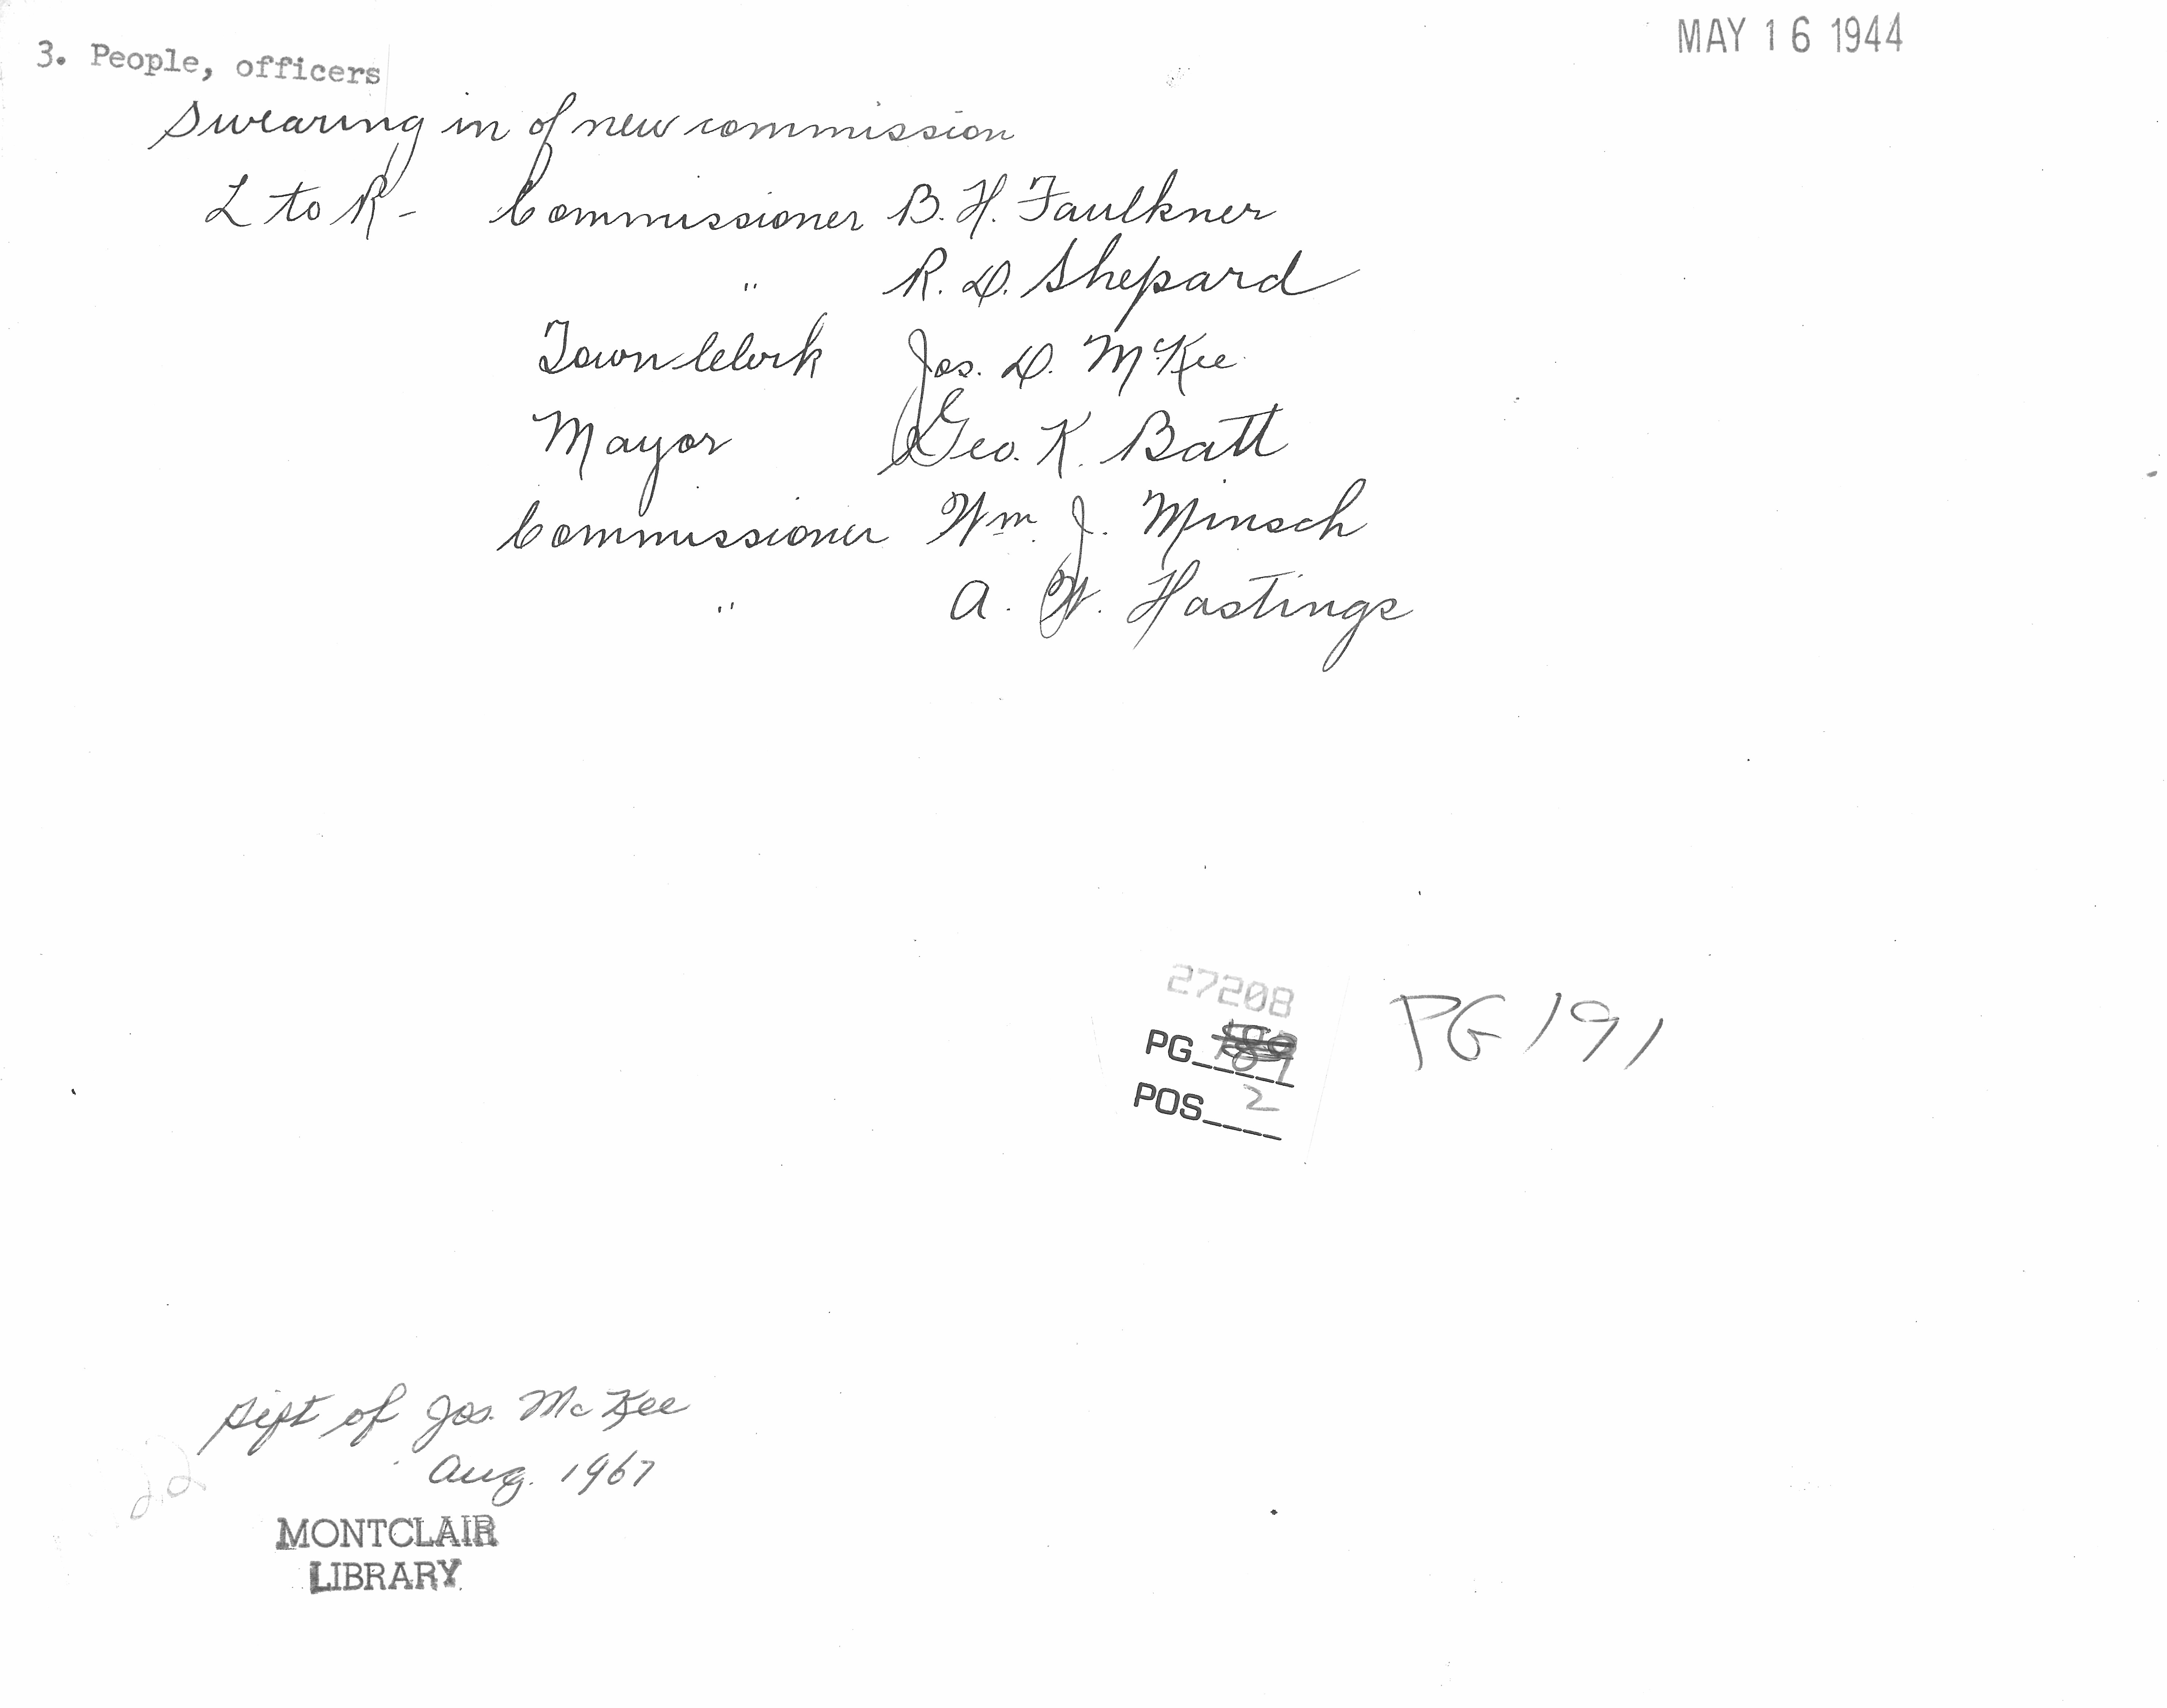 MAY 16 1944
3. People, officers
Swearing in of new commission
L to R - Commissioner B. H. Faulkner
" R. D. Shepard
Town Clerk Jos. D. McKee
Mayor Geo. K. Batt
Commissioner Wm. J. Minsch
" A. W. Hastings
27208
PG
PG 191
POS 2
Gift of Jos. McKee
Aug. 1967
MONTCLAIR
LIBRARY